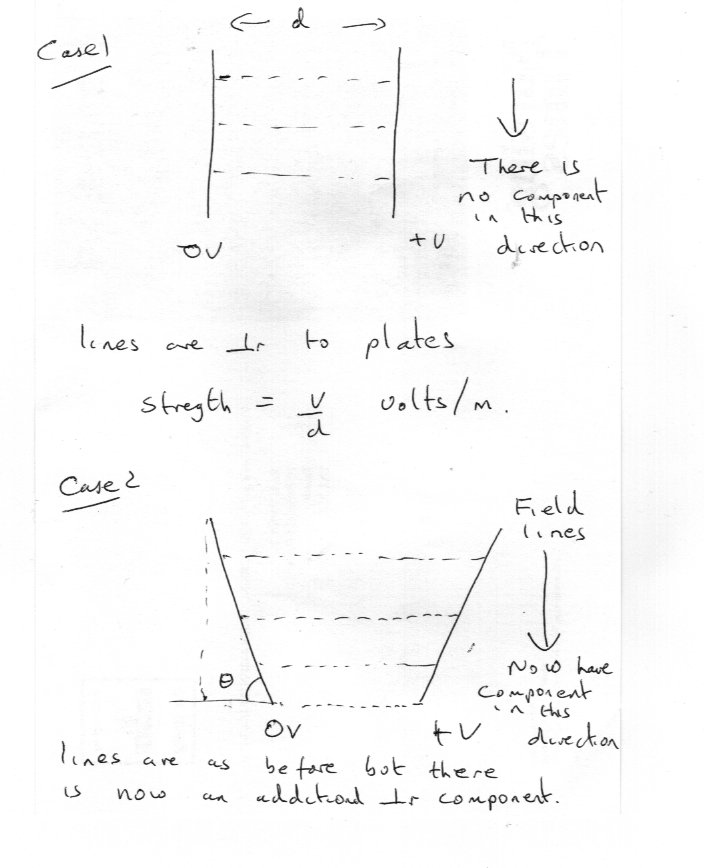 Case 1
← d →
There is
no component
in this
direction
0V
+V
lines are ⊥r to plates
stregth = V/d volts/m.
Case 2
Field
lines
θ
Now have
component
in this
direction
0V
+V
lines are as before but there
is now an additional ⊥r component.